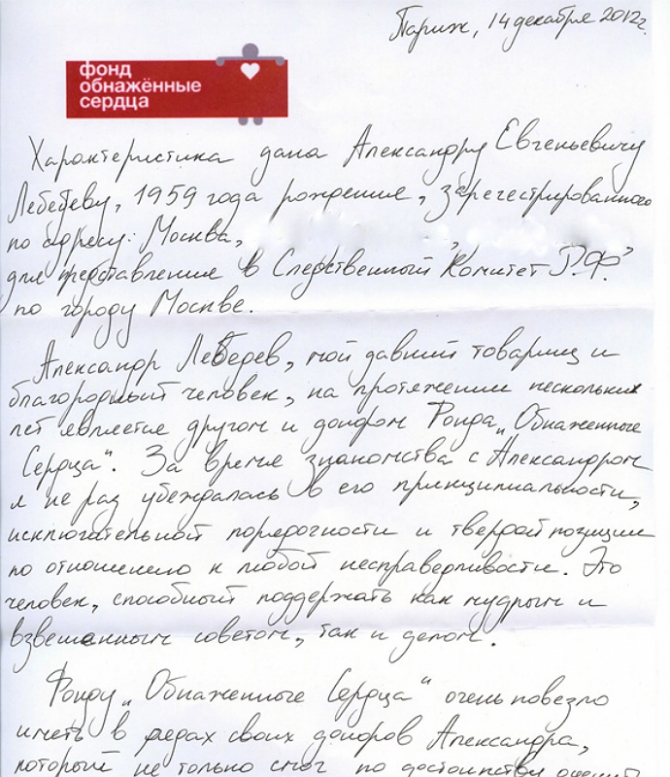 Париж, 14 декабря 2012г.
фонд
обнажённые
сердца
Характеристика дана Александру Евгеньевичу
Лебедеву, 1959 года рождения, зарегестрированного
по адресу: Москва,
для представления в Следственный Комитет Р.Ф."
по городу Москве.
Александр Лебедев, мой давний товарищ и
благородный человек, на протяжении нескольких
лет является другом и донором Фонда „Обнаженные
Сердца". За время знакомства с Александром
я не раз убеждалась в его принципиальности,
исключительной порядочности и твердой позиции
по отношению к любой несправедливости. Это
человек, способный поддержать как мудрым и
взвешенным советом, так и делом.
Фонду „Обнаженные Сердца" очень повезло
иметь в рядах своих доноров Александра,
который не только смог по достоинству оценить